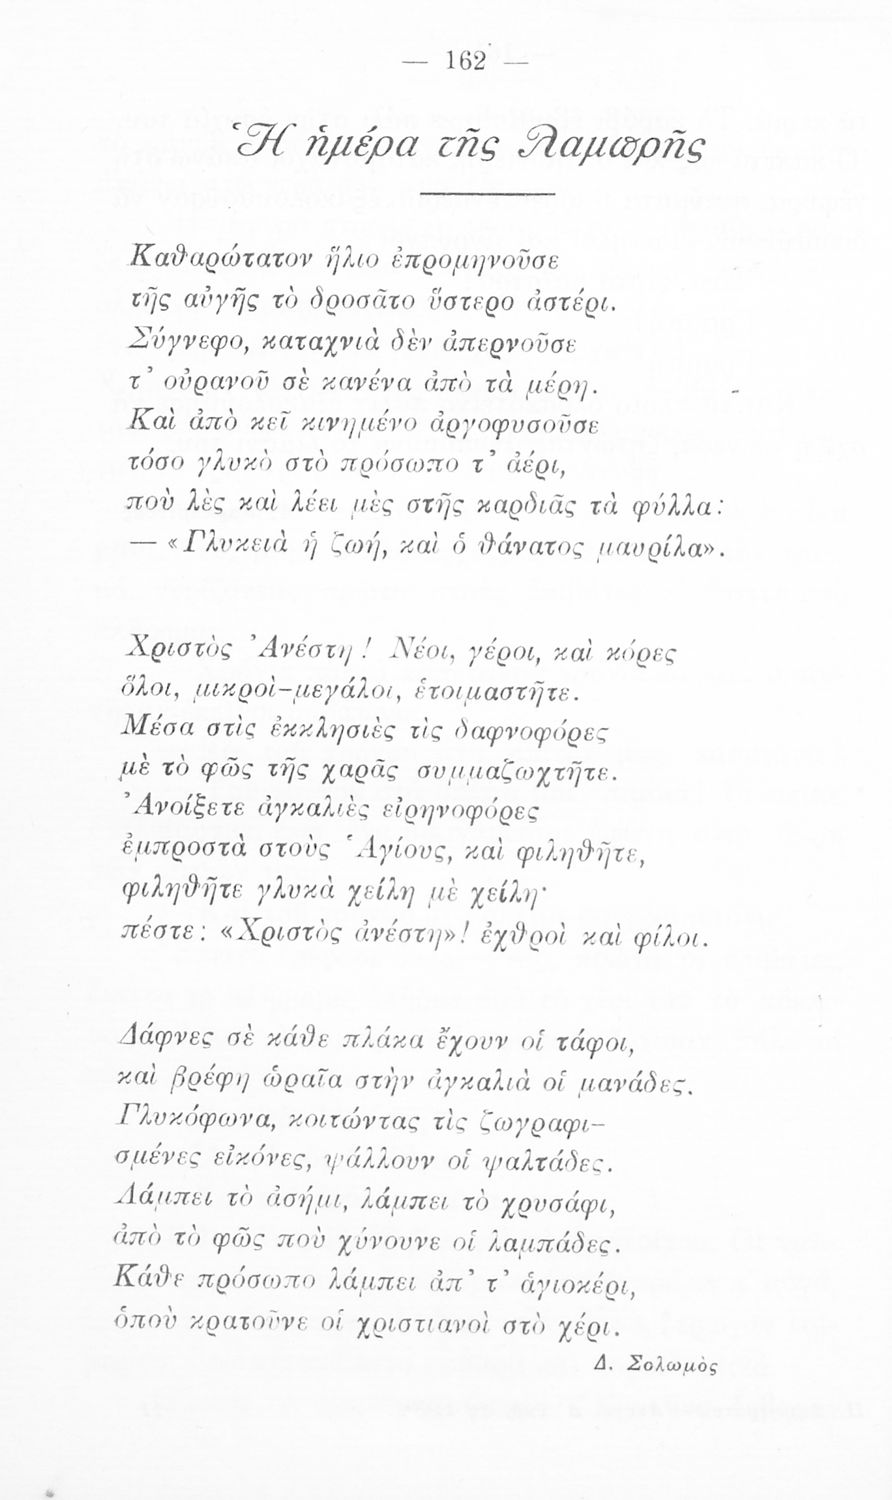 — 162 —
Ἡ ἡμέρα τῆς Λαμπρῆς
Καθαρώτατον ἥλιο ἐπρομηνοῦσε
τῆς αὐγῆς τὸ δροσᾶτο ὕστερο ἀστέρι.
Σύγνεφο, καταχνιὰ δὲν ἀπερνοῦσε
τ’ οὐρανοῦ σὲ κανένα ἀπὸ τὰ μέρη.
Καὶ ἀπὸ κεῖ κινημένο ἀργοφυσοῦσε
τόσο γλυκὸ στὸ πρόσωπο τ’ ἀέρι,
ποὺ λὲς καὶ λέει μὲς στῆς καρδιᾶς τὰ φύλλα:
— «Γλυκειὰ ἡ ζωή, καὶ ὁ θάνατος μαυρίλα».
Χριστὸς Ἀνέστη! Νέοι, γέροι, καὶ κόρες
ὅλοι, μικροὶ-μεγάλοι, ἑτοιμαστῆτε.
Μέσα στὶς ἐκκλησιὲς τὶς δαφνοφόρες
μὲ τὸ φῶς τῆς χαρᾶς συμμαζωχτῆτε.
Ἀνοίξετε ἀγκαλιὲς εἰρηνοφόρες
ἐμπροστὰ στοὺς Ἁγίους, καὶ φιληθῆτε,
φιληθῆτε γλυκὰ χείλη μὲ χείλη·
πέστε: «Χριστὸς ἀνέστη»! ἐχθροὶ καὶ φίλοι.
Δάφνες σὲ κάθε πλάκα ἔχουν οἱ τάφοι,
καὶ βρέφη ὡραῖα στὴν ἀγκαλιὰ οἱ μανάδες.
Γλυκόφωνα, κοιτώντας τὶς ζωγραφι-
σμένες εἰκόνες, ψάλλουν οἱ ψαλτάδες.
Λάμπει τὸ ἀσήμι, λάμπει τὸ χρυσάφι,
ἀπὸ τὸ φῶς ποὺ χύνουνε οἱ λαμπάδες.
Κάθε πρόσωπο λάμπει ἀπ’ τ’ ἁγιοκέρι,
ὁποὺ κρατοῦνε οἱ χριστιανοὶ στὸ χέρι.
Δ. Σολωμὸς